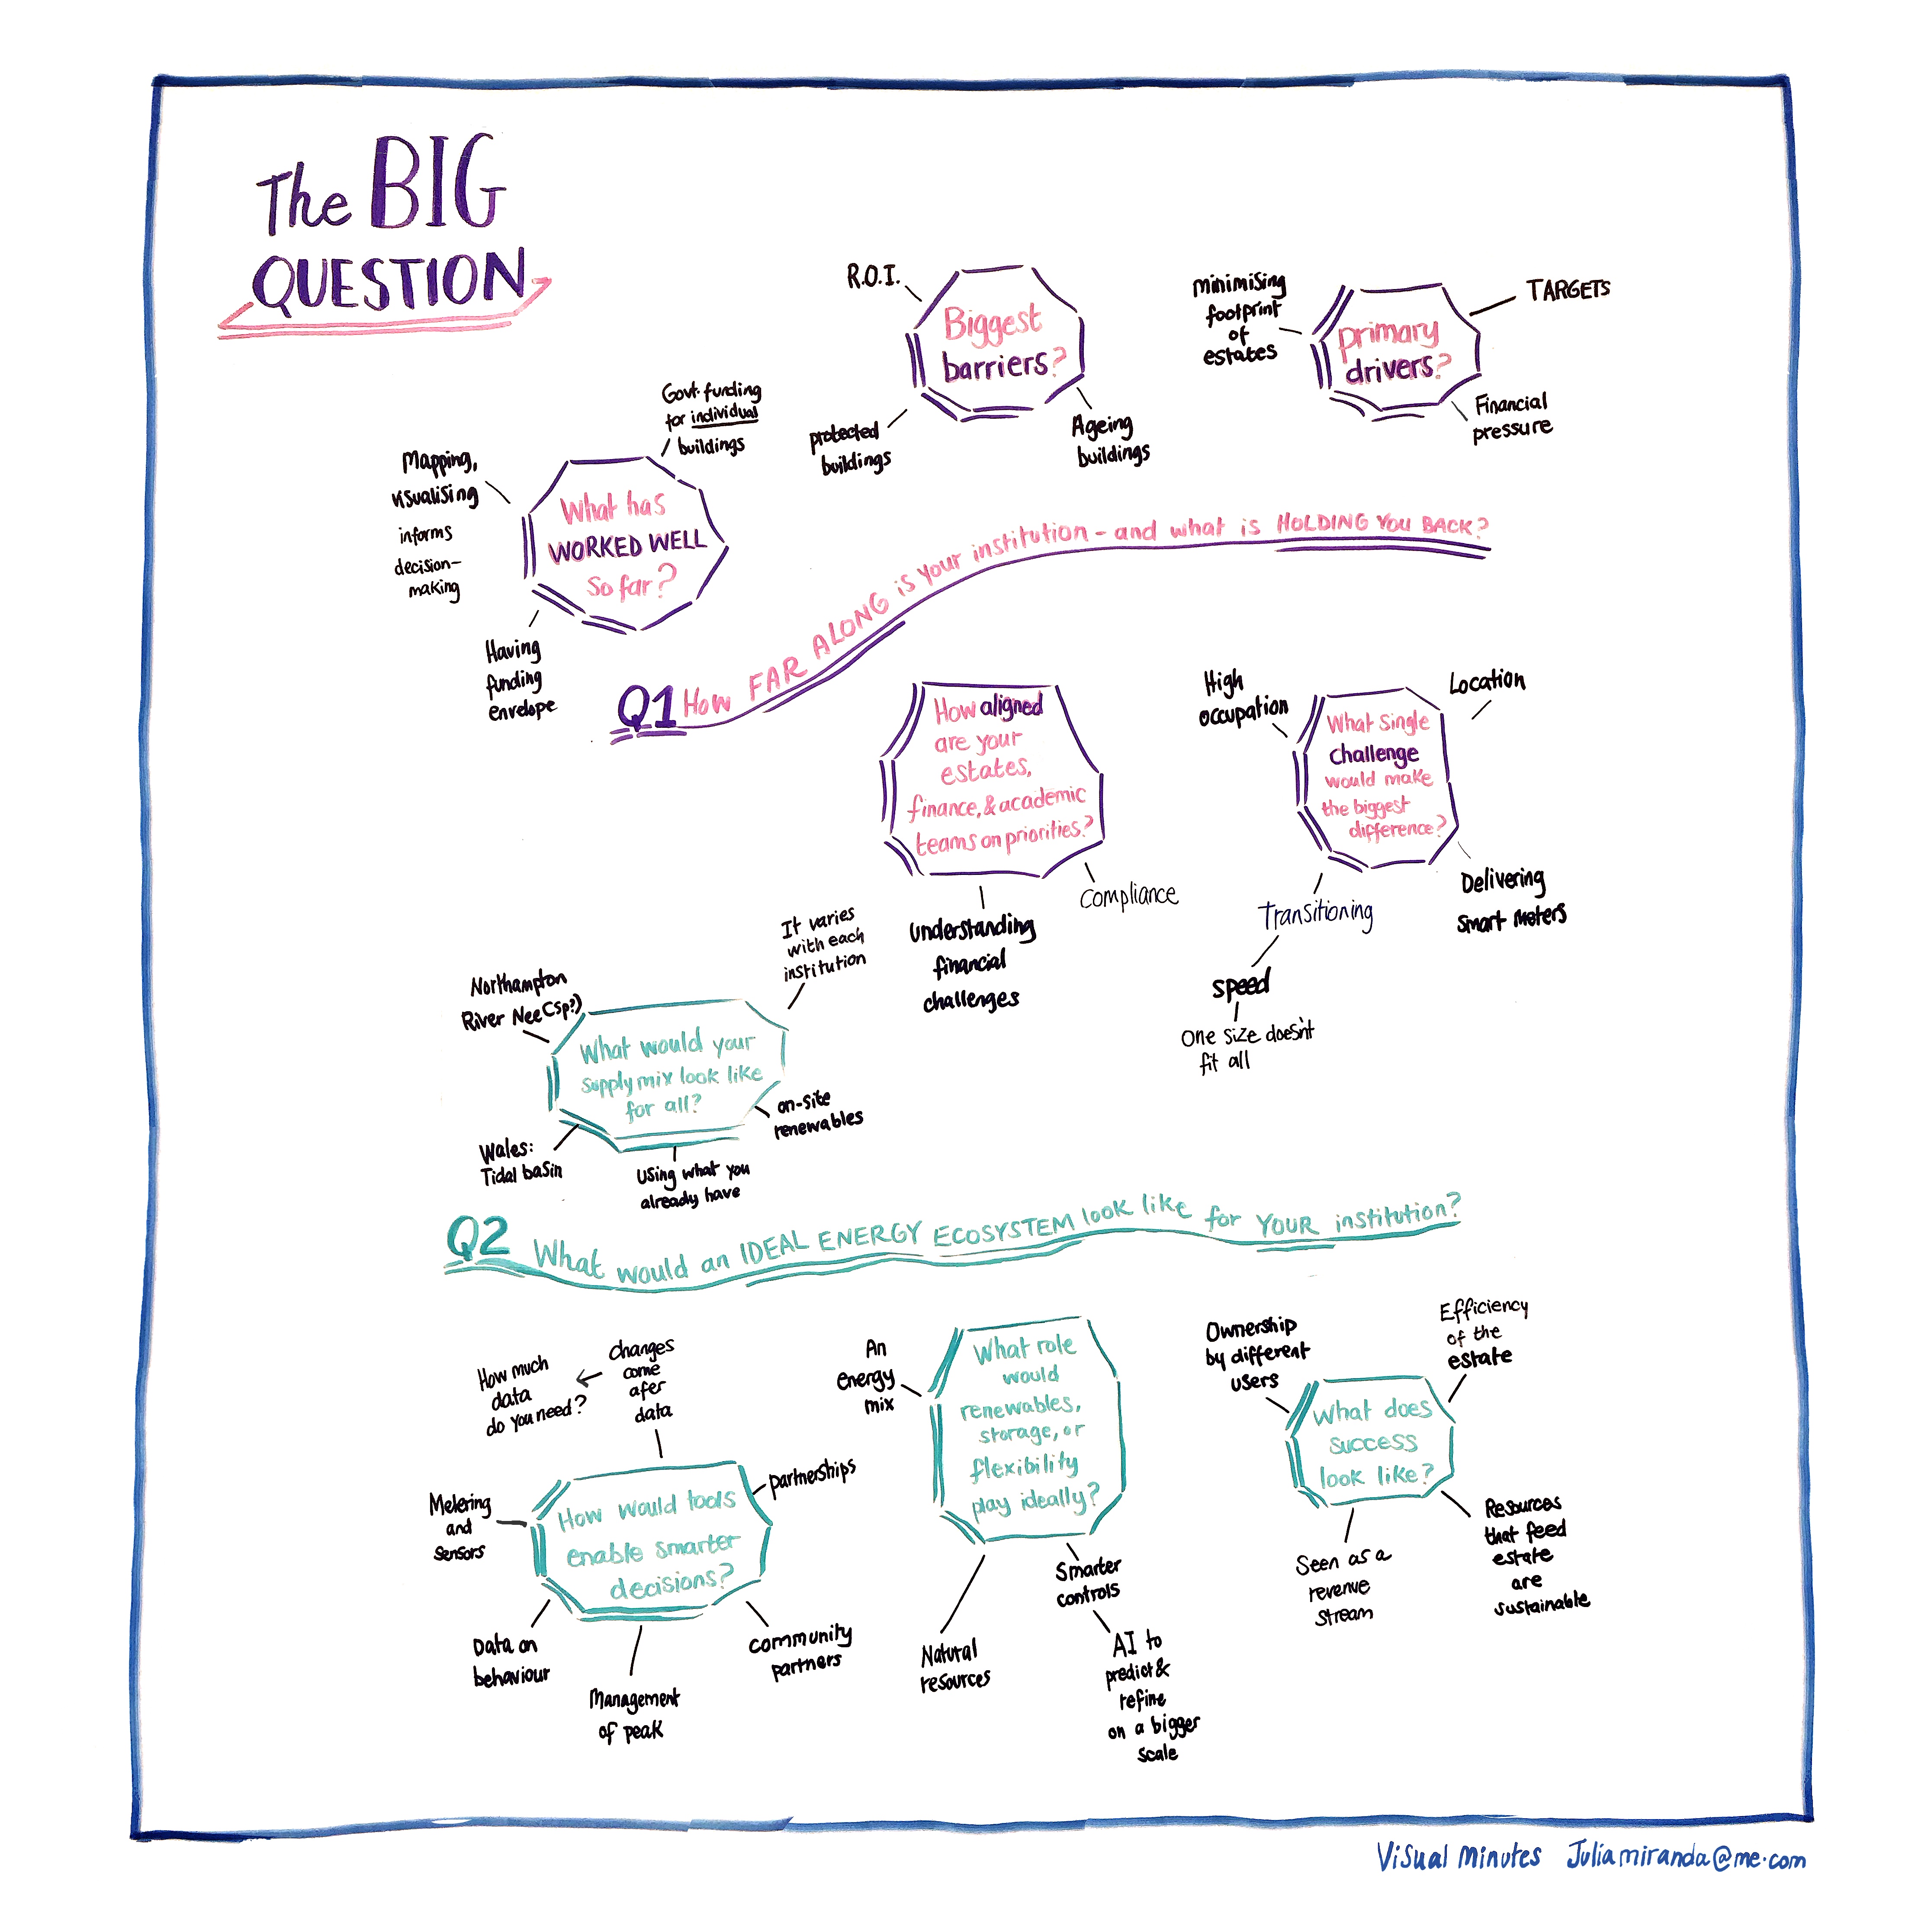 The BIG
QUESTION
R.O.I.
Biggest
barriers?
protected
buildings
Ageing
buildings
minimising
footprint
of
estates
primary
drivers?
TARGETS
Financial
pressure
Govt. funding
for individual
buildings
Mapping,
visualising
informs
decision-
making
What has
WORKED WELL
So far?
Having
funding
envelope
Q1 How FAR ALONG is your institution - and what is HOLDING YOU BACK?
How aligned
are your
estates,
finance, & academic
teams on priorities?
Compliance
understanding
financial
challenges
High
occupation
Location
What single
challenge
would make
the biggest
difference?
Delivering
smart meters
Transitioning
speed
One size doesn't
fit all
It varies
with each
institution
Northampton
River Nee (sp?)
What would your
supply mix look like
for all?
on-site
renewables
Wales:
Tidal basin
Using what you
already have
Q2 What would an IDEAL ENERGY ECOSYSTEM look like for YOUR institution?
changes
come
afer
data
How much
data
do you need?
partnerships
Metering
and
sensors
How would tools
enable smarter
decisions?
Data on
behaviour
Management
of peak
community
partners
An
energy
mix
What role
would
renewables,
storage, or
flexibility
play ideally?
Natural
resources
Smarter
controls
AI to
predict &
refine
on a bigger
scale
Ownership
by different
users
Efficiency
of the
estate
What does
success
look like?
Seen as a
revenue
stream
Resources
that feed
estate
are
sustainable
Visual Minutes Juliamiranda@me.com